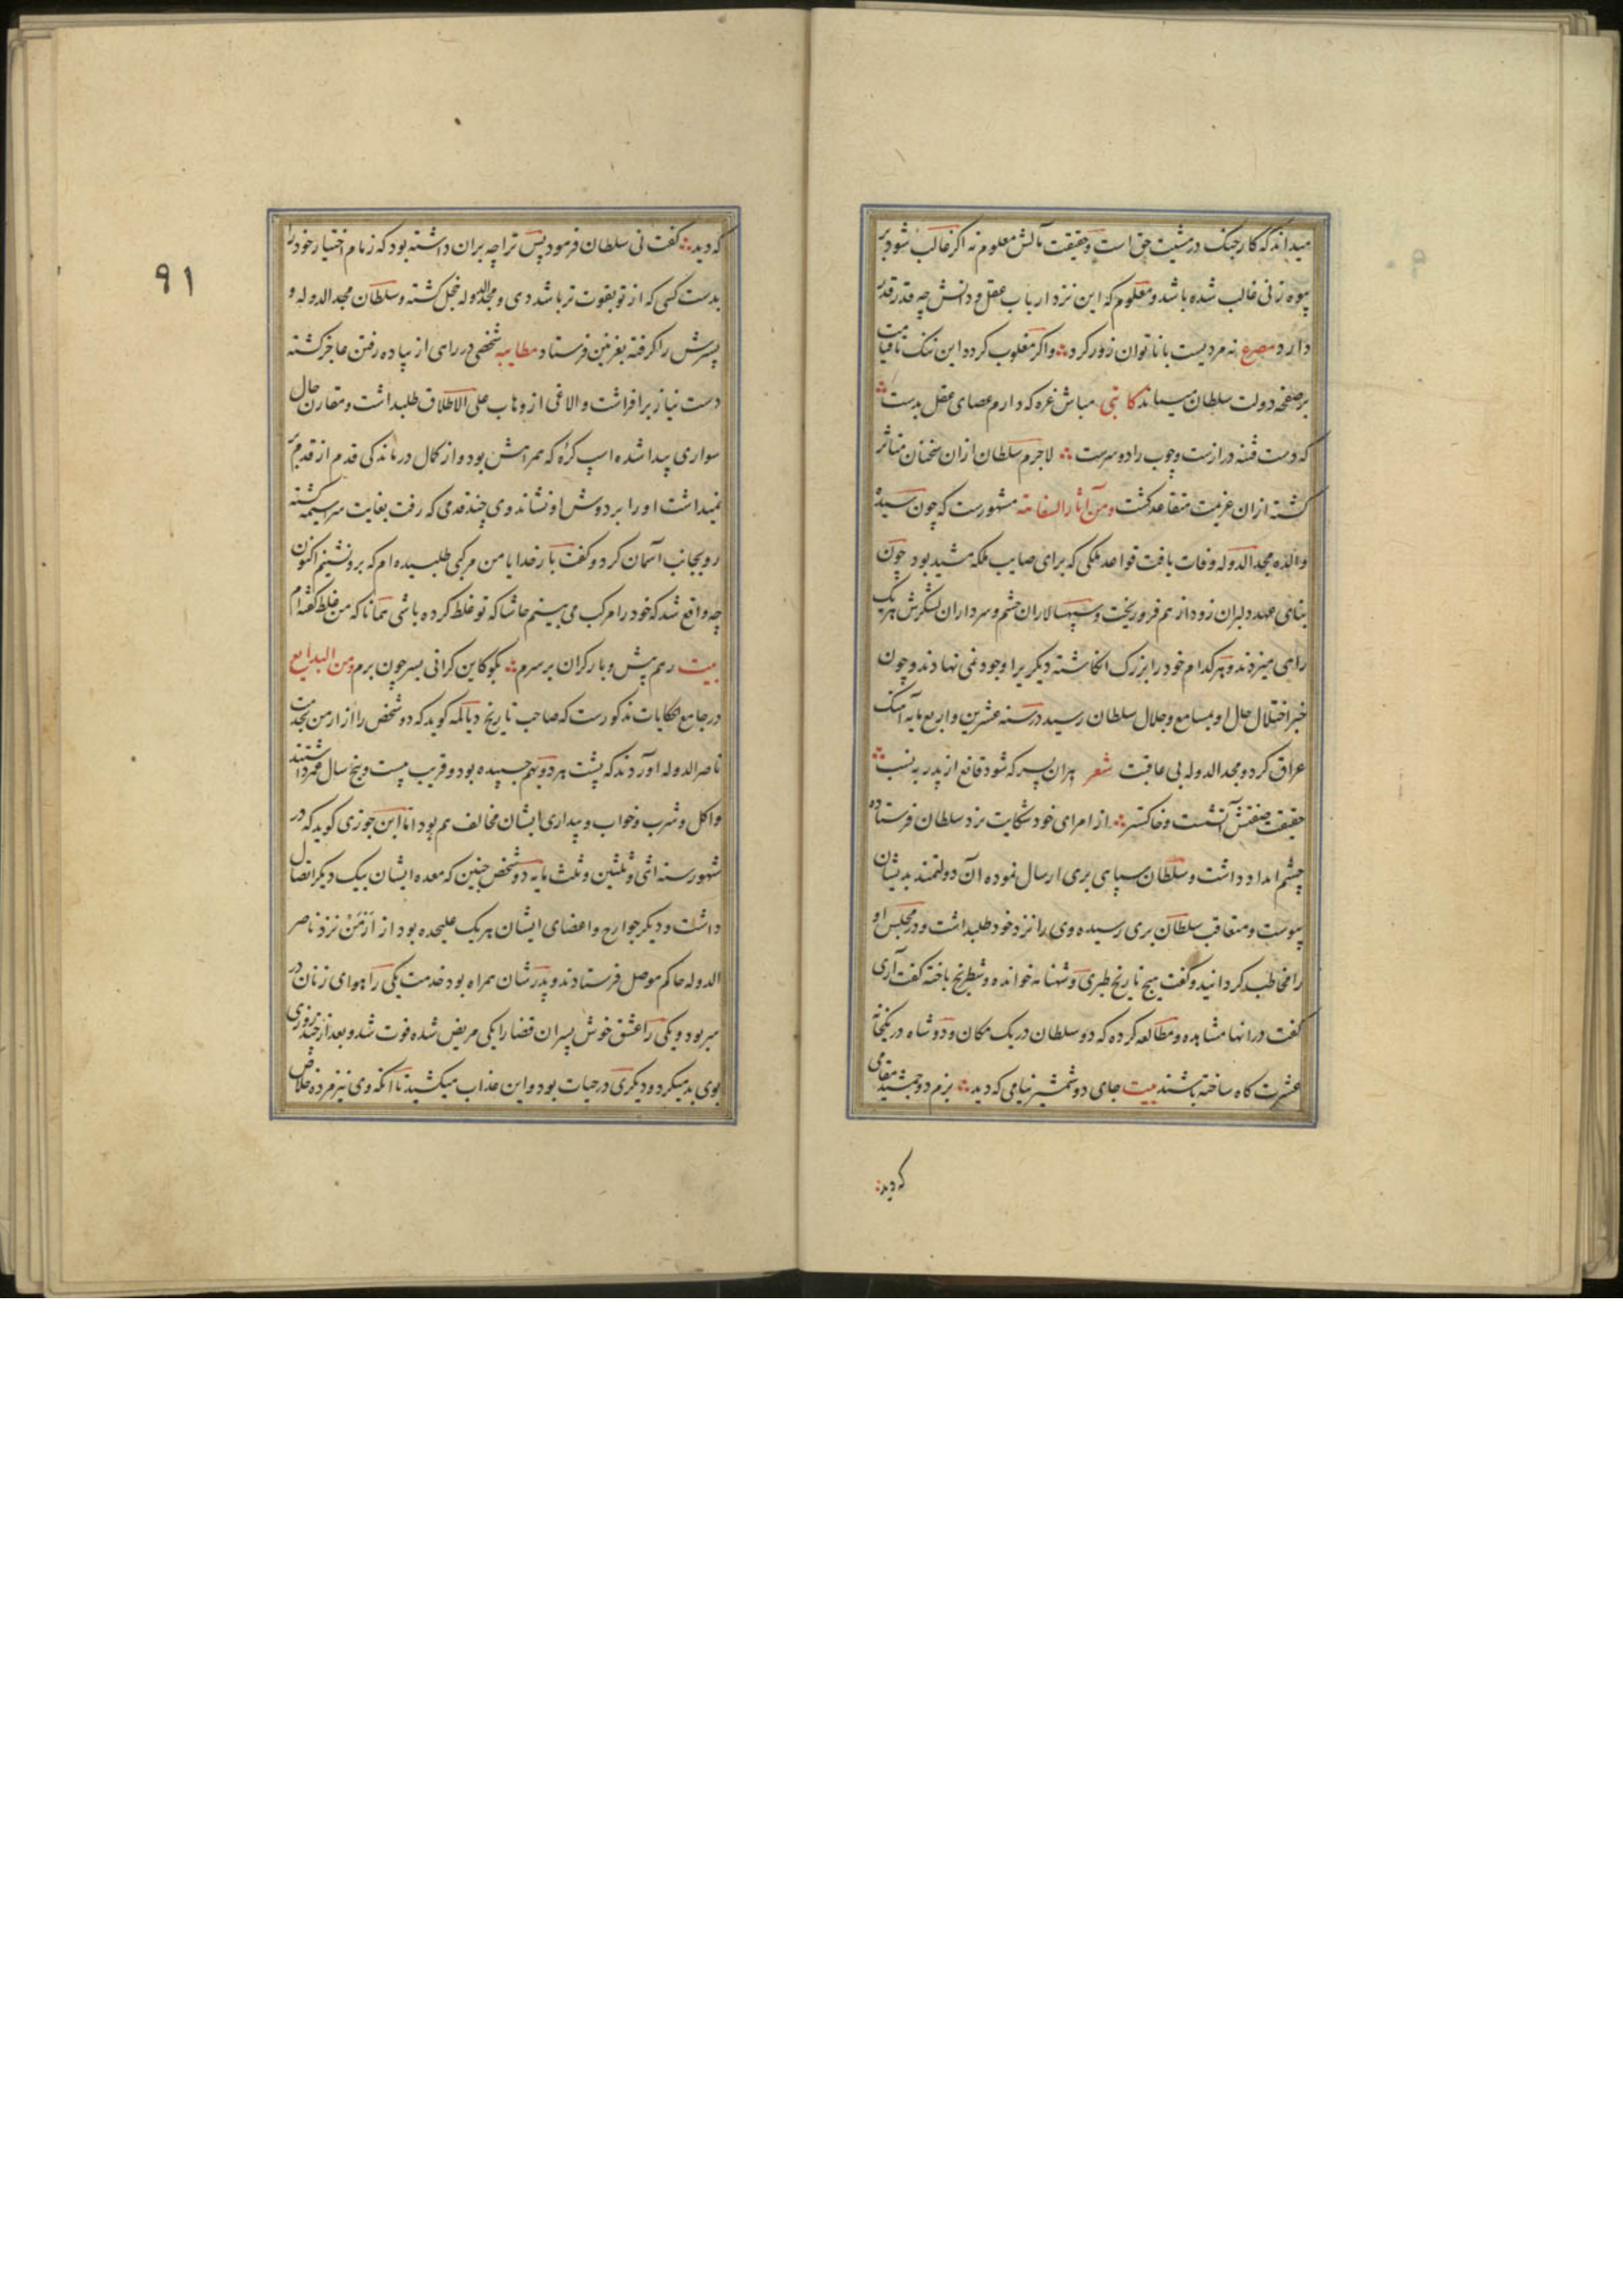 میداند که کار جنک در مشیت حق است و حقیقت مآلش معلوم نه اکر غالب شود بر
پیوه زنی غالب شده باشد و معلوم که این نزد ارباب عقل و دانش چه قدر قدر
دارد مصرع نه مردیست با ناتوان زور کرد و اکر مغلوب کردد این ننک تا قیامت
بر صفحه دولت سلطان میماند کاتبی مباش غره که دارم عصای عقل بدست
که دست فتنه درازست و چوب راده سرست لاجرم سلطان ازان سخنان متاثر
کشته ازان عزیمت متقاعد کشت و من آثار السفاهة مشهورست که چون سیده
والده مجد الدوله وفات یافت قواعد ملکی که برای صایب ملکه مشید بود چون
بنای عهد دلبران زود از هم فرو ریخت و سپهسالاران حشم و سرداران لشکرش هر یک
راهی میزدند و هر کدام خود را بزرک انکاشته دیکر یرا وجود نمی نهادند و چون
خبر اختلال حال او بمسامع و جلال سلطان رسید در سنه عشرین و اربع مایه آهنک
عراق کرد و مجد الدوله بی عاقبت شعر هران پسر که شود قانع از پدر به نسب
حقیقت صفتش آتشست و خاکستر از امرای خود شکایت نزد سلطان فرستاده
چشم امداد داشت و سلطان سپاهی بری ارسال نموده آن دولتمند بدیشان
پیوست و متعاقب سلطان بری رسیده وی را نزد خود طلبداشت و در مجلس او
را مخاطب کردانید و کفت هیچ تاریخ طبری و شهنامه خوانده و شطرنج باخته کفت آری
کفت در انها مشاهده و مطالعه کرده که دو سلطان در یک مکان و دو شاه در یکخانه
عشرت کاه ساخته باشند بیت جای دو شمشیر نیامی که دید بزم دو جمشید مقامی
که دید
که دید کفت نی سلطان فرمود پس ترا چه بران داشته بود که زمام اختیار خود را
بدست کسی که از تو بقوت تر باشد دهی و مجد الدوله خجل کشته و سلطان مجد الدوله و
پسرش را کرفته بغزنین فرستاد مطایبه شخصی در راهی از پیاده رفتن عاجز کشته
دست نیاز برافراشت و الاغی از وهاب علی الاطلاق طلبداشت و مقارن حال
سواری پیدا شده اسپ کرهٔ که همراهش بود و از کمال درماندکی قدم از قدم بر
نمیداشت او را بر دوش او نشاند وی چند قدمی که رفت بغایت سراسیمه کشته
رو بجانب آسمان کرد و کفت بار خدایا من مرکبی طلبیده ام که برو نشینم اکنون
چه واقع شد که خود را مرکب می بینم حاشا که تو غلط کرده باشی همانا که من غلط کفته ام
بیت رهم پیش و بار کران بر سرم بکو کاین کرانی بسر چون برم و من البدایع
در جامع حکایات مذکورست که صاحب تاریخ دیالمه کوید که دو شخص را از ارمن بخدمت
ناصر الدوله آوردند که پشت هر دو بهم چسپیده بود و قریب بیست و پنج سال عمر داشتند
و اکل و شرب و خواب و بیداری ایشان مخالف هم بود اما ابن جوزی کوید که در
شهور سنه اثنی و ثلثین و ثلث مایه دو شخص جنین که معده ایشان بیک دیکر اتصال
داشت و دیکر جوارح و اعضای ایشان هر یک علیحده بود از ارمن نزد ناصر
الدوله حاکم موصل فرستادند و پدرشان همراه بود خدمت یکی را هوای زنان در
سر بود و یکی را عشق خوش پسران قضا را یکی مریض شده فوت شد و بعد از چند روزی
بوی بد میکرد و دیکری در حیات بود و این عذاب میکشید تا آنکه وی نیز مرده خلاص
۹۱